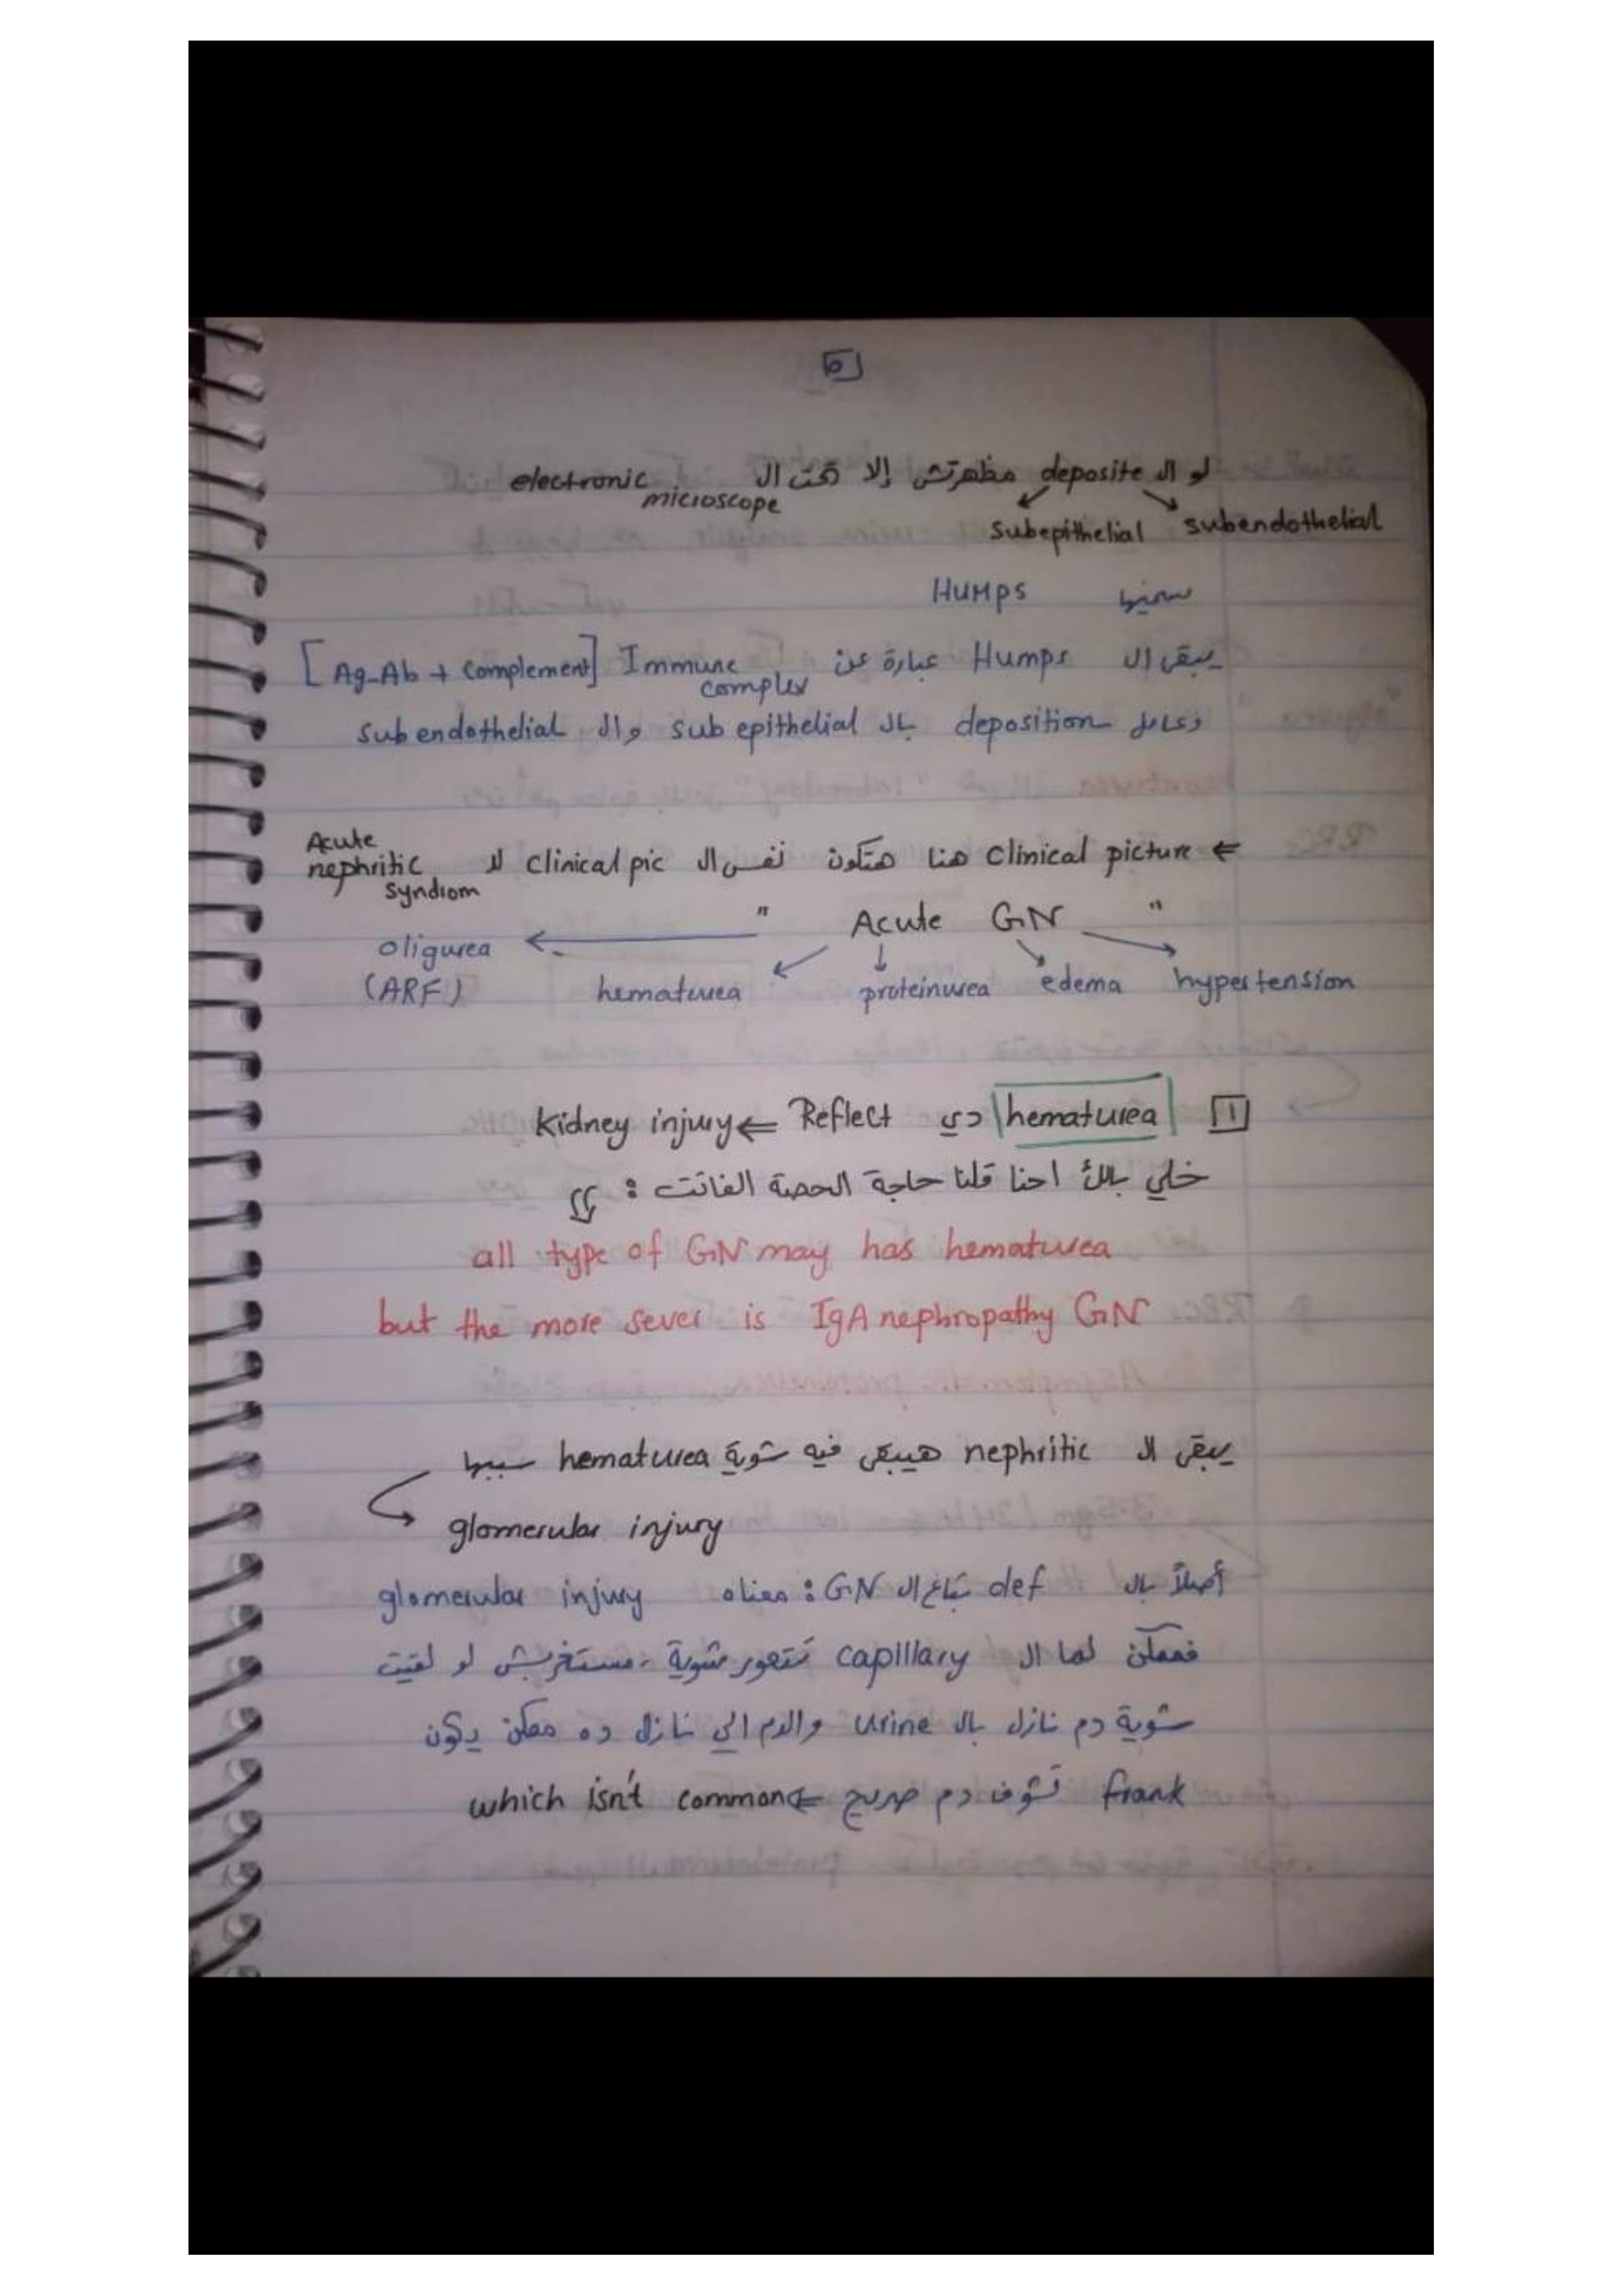 ٥
لو الـ deposite مظهرتش إلا تحت الـ electronic microscope
subepithelial subendothelial
سميها Humps
يبقى الـ Humps عبارة عن Immune complex [Ag-Ab + complement]
وعامل deposition بالـ sub epithelial والـ subendothelial
⇐ clinical picture هنا هتكون نفس الـ clinical pic لـ Acute nephritic syndrom
" Acute GN "
oligurea (ARF) hematurea proteinurea edema hypertension
١ hematurea دي Reflect ⇐ kidney injury
خلي بالك احنا قلنا حاجة الحصة الفاتت :
all type of GN may has hematurea
but the more sever is IgA nephropathy GN
يبقى الـ nephritic هيبقى فيه شوية hematurea سببها
glomerular injury
أصلاً بالـ def بتاع الـ GN : معناه glomerular injury
فممكن لما الـ capillary تتعور شوية، مستغربش لو لقيت
شوية دم نازل بالـ urine والدم الي نازل ده ممكن يكون
frank تشوف دم صريح ⇐ which isn't common